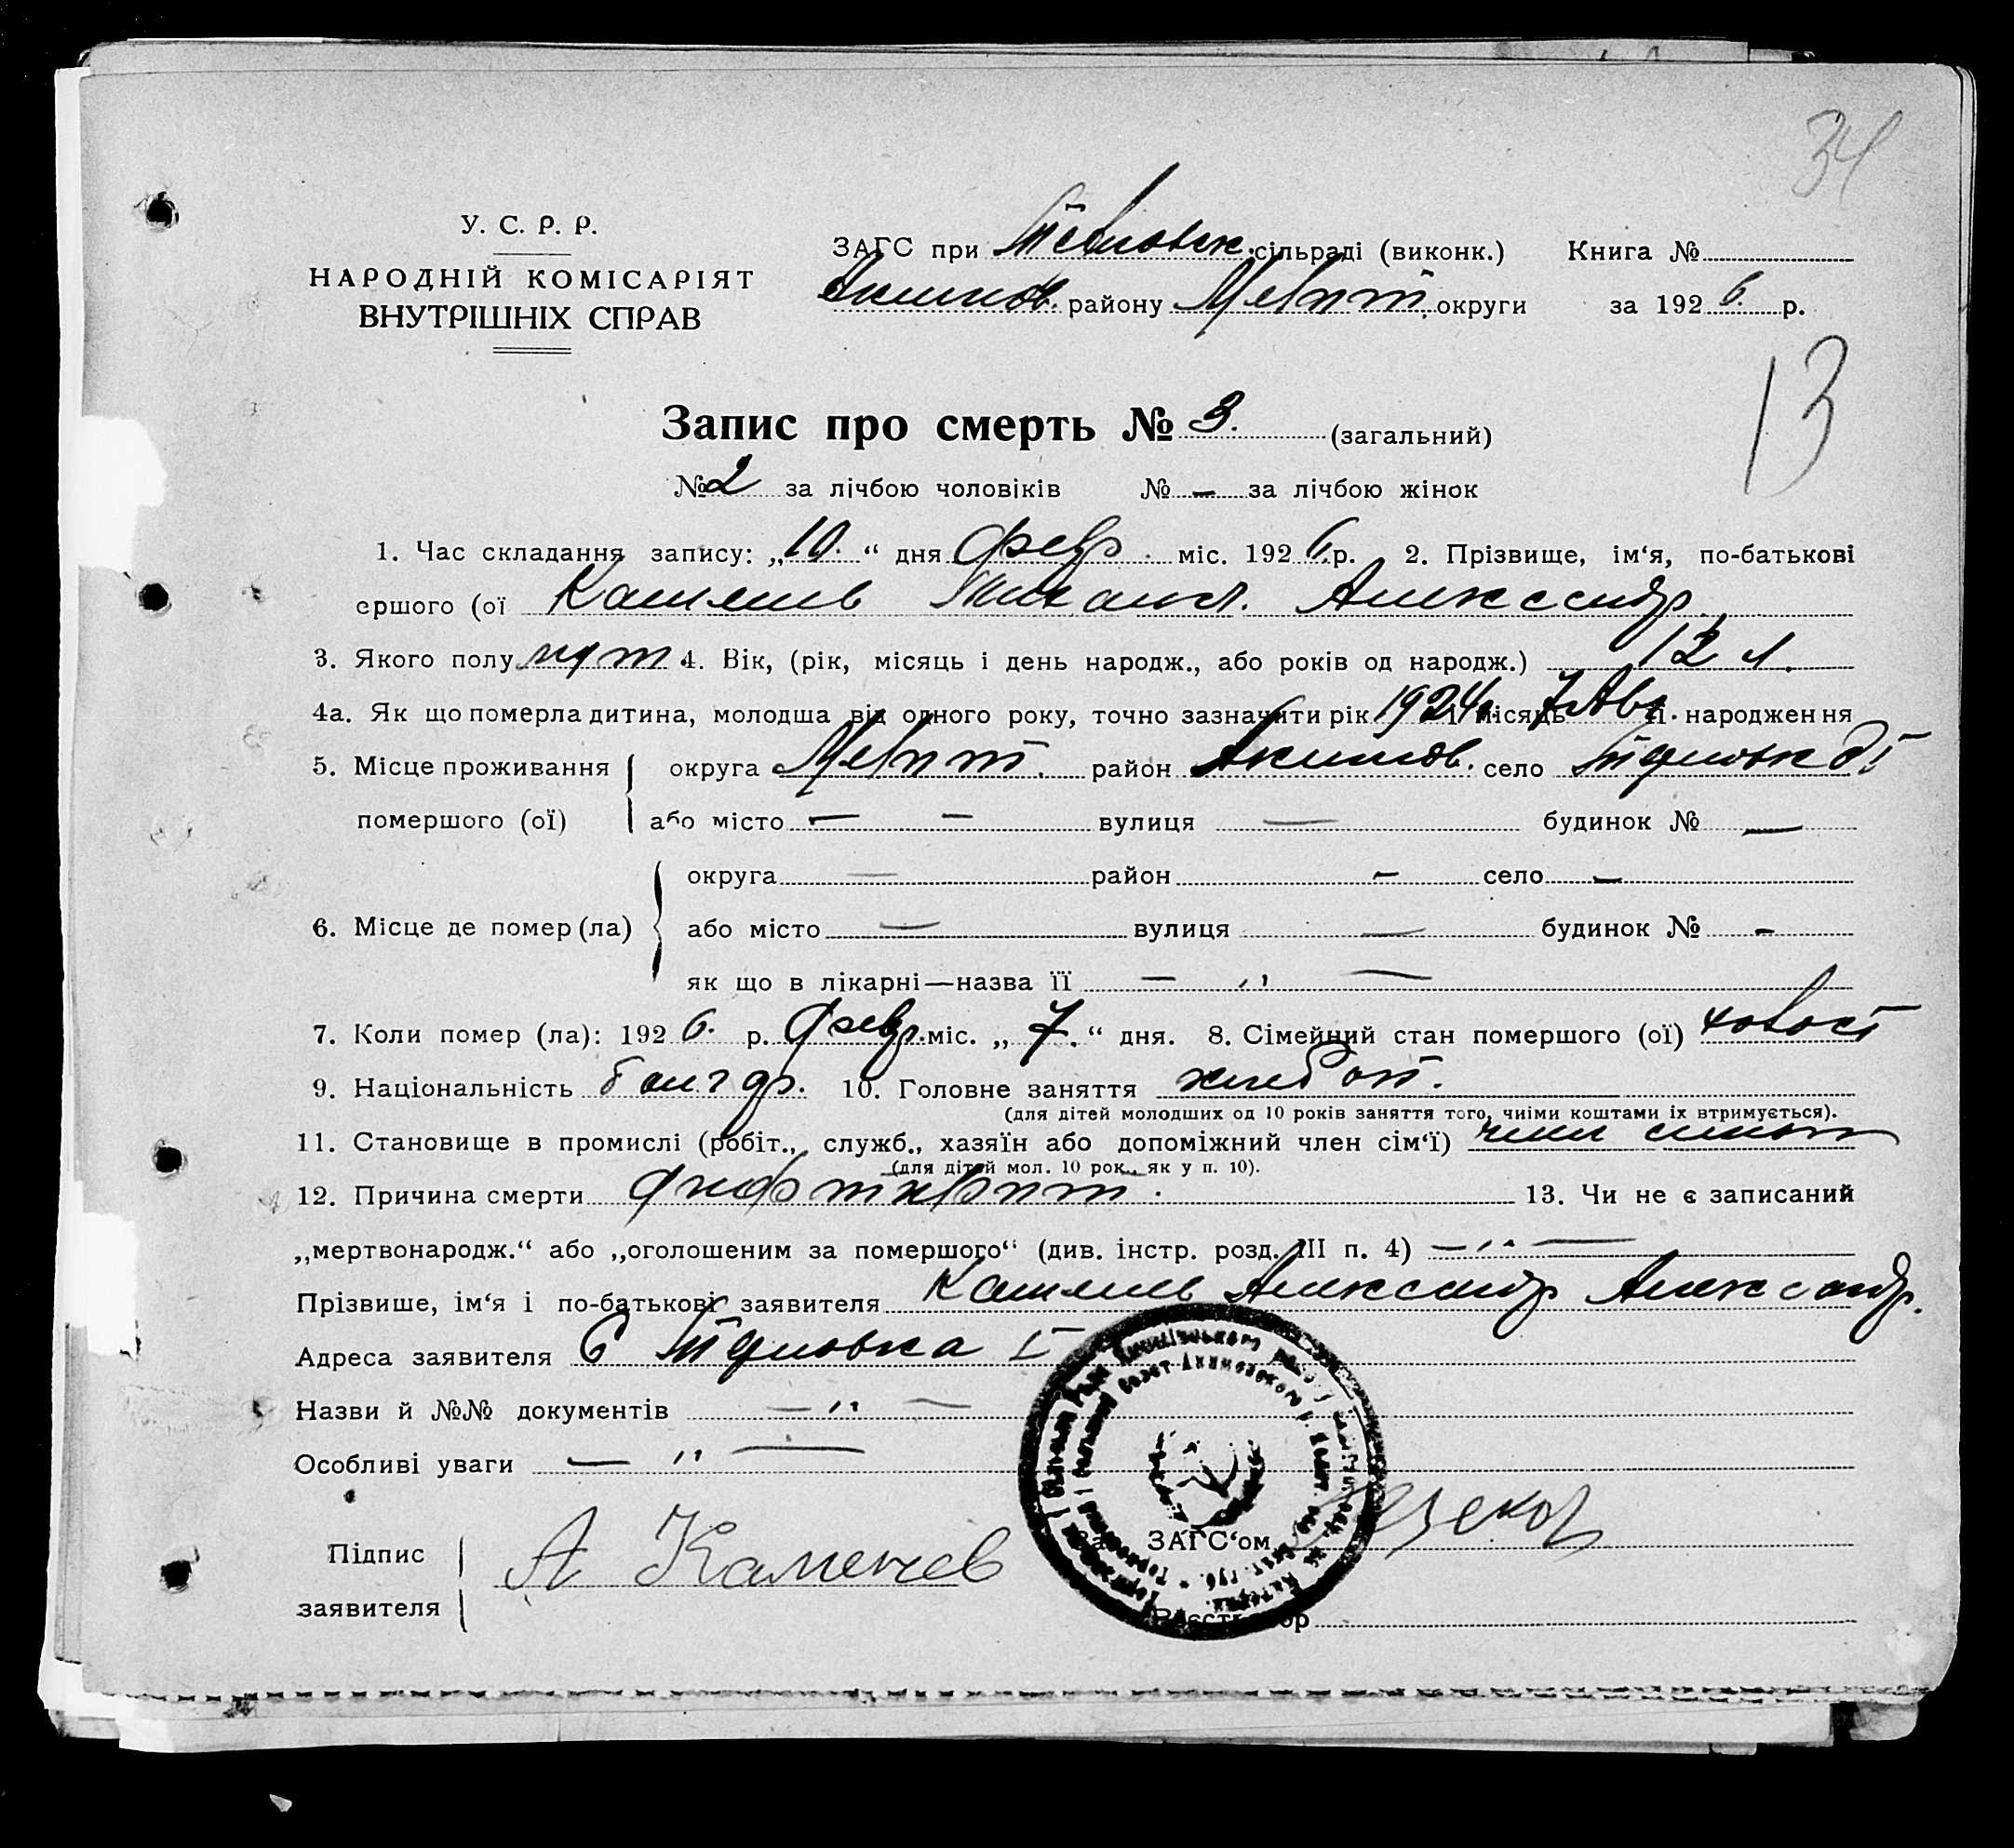 34
У. С. Р. Р.
НАРОДНІЙ КОМІСАРІЯТ
ВНУТРІШНІХ СПРАВ
ЗАГС при сільраді (виконк.) Книга №
Акимов. району Мелит. округи за 1926. р.
13
Запис про смерть № 3. (загальний)
№ 2 за лічбою чоловіків № — за лічбою жінок
1. Час складання запису: „10.“ дня февр. міс. 1926. р. 2. Прізвище, ім‘я, по-батькові
ершого (ої Александр.
3. Якого полу 4. Вік, (рік, місяць і день народж., або років од народж.) 12 л.
4а. Як що померла дитина, молодша від одного року, точно зазначити рік 1924 і місяць 7 Авг. народження
5. Місце проживання округа Мелит. район Акимов. село
помершого (ої) або місто — — вулиця — будинок № —
округа — район — село —
6. Місце де помер (ла) або місто — вулиця — будинок № -
як що в лікарні—назва її — „ —
7. Коли помер (ла): 1926. р. февр. міс. „7.“ дня. 8. Сімейний стан помершого (ої) холост
9. Національність болгар. 10. Головне заняття хлебоп.
(для дітей молодших од 10 років заняття того, чиїми коштами їх втримується).
11. Становище в промислі (робіт., служб., хазяїн або допоміжний член сім‘ї) член
(для дітей мол. 10 рок., як у п. 10).
12. Причина смерти 13. Чи не є записаний
„мертвонародж.“ або „оголошеним за помершого“ (див. інстр. розд. III п. 4) — „ —
Прізвище, ім‘я і по-батькові заявителя Александр Александр.
Адреса заявителя С I
Назви й №№ документів — „ —
Особливі уваги — „ —
Підпис
заявителя А Каменев
ЗАГС‘ом